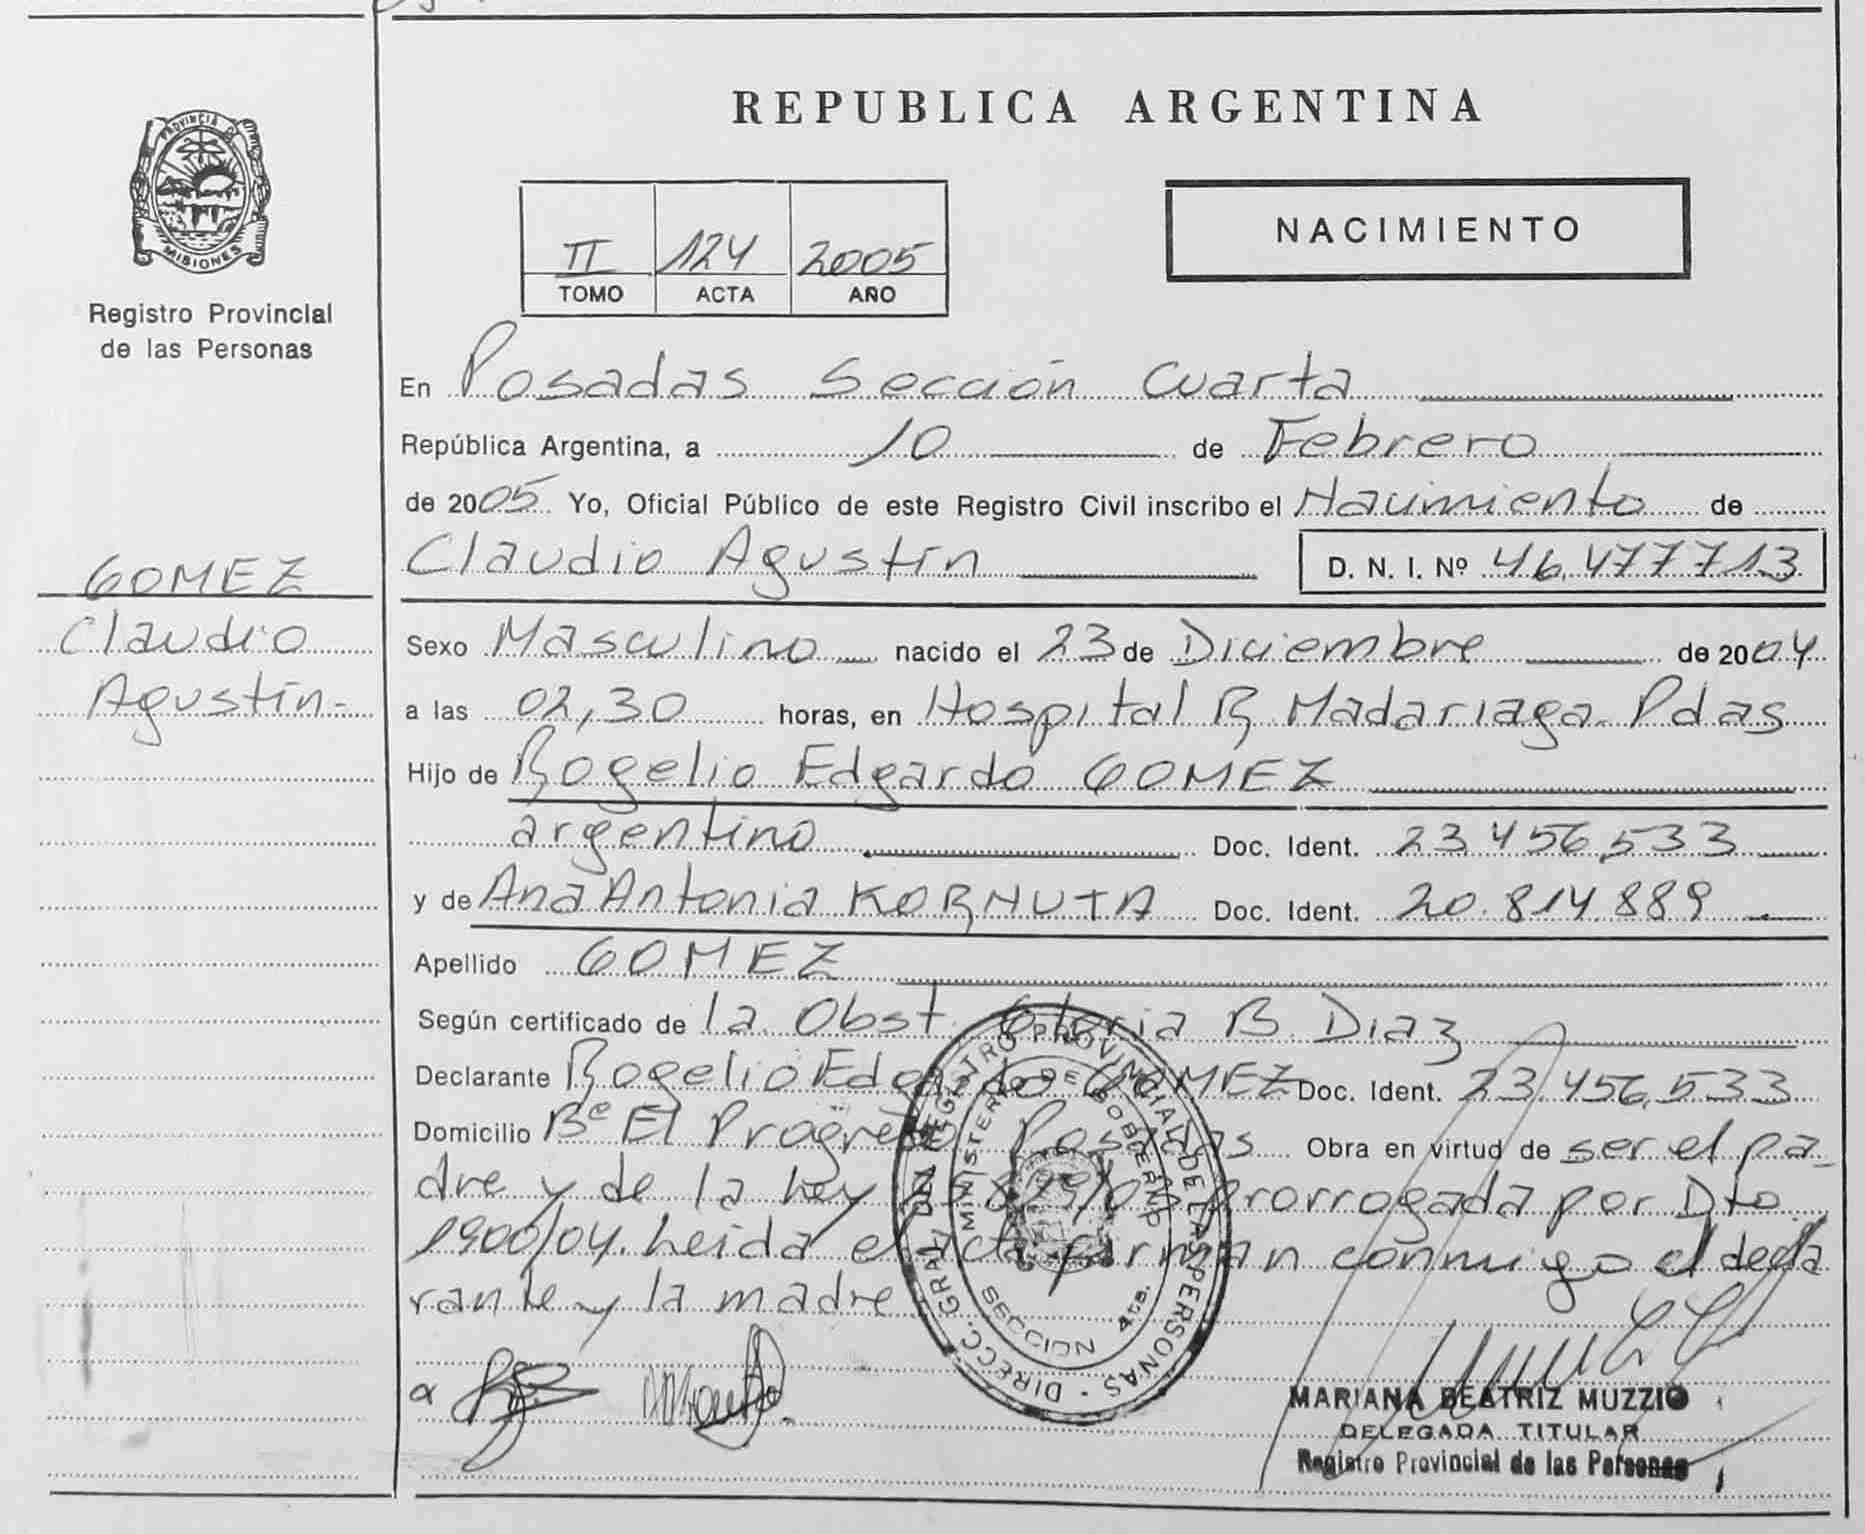 REPUBLICA ARGENTINA
PROVINCIA DE
MISIONES
Registro Provincial
de las Personas
II 124 2005
TOMO ACTA AÑO
NACIMIENTO
En Posadas Sección Cuarta
República Argentina, a 10 de Febrero
de 2005 Yo, Oficial Público de este Registro Civil inscribo el Nacimiento de
Claudio Agustín D. N. I. Nº 46.477713
GOMEZ
Claudio
Agustín-
Sexo Masculino nacido el 23 de Diciembre de 2004
a las 02,30 horas, en Hospital R Madariaga - Pdas
Hijo de Rogelio Edgardo GOMEZ
argentino Doc. Ident. 23.456.533
y de Ana Antonia KORNUTA Doc. Ident. 20.814.889
Apellido GOMEZ
Según certificado de la Obst. Gloria B. Diaz
Declarante Rogelio Edgardo GOMEZ Doc. Ident. 23.456.533
Domicilio Bº El Progreso Posadas Obra en virtud de ser el pa-
dre y de la Ley prorrogada por Dto
1900/04. Leida el acta firman conmigo el decla
rante y la madre
DIRECC. GRAL. DEL REGISTRO PROVINCIAL DE LAS PERSONAS
MINISTERIO DE GOBIERNO
SECCION 4ta.
MARIANA BEATRIZ MUZZIO
DELEGADA TITULAR
Registro Provincial de las Personas